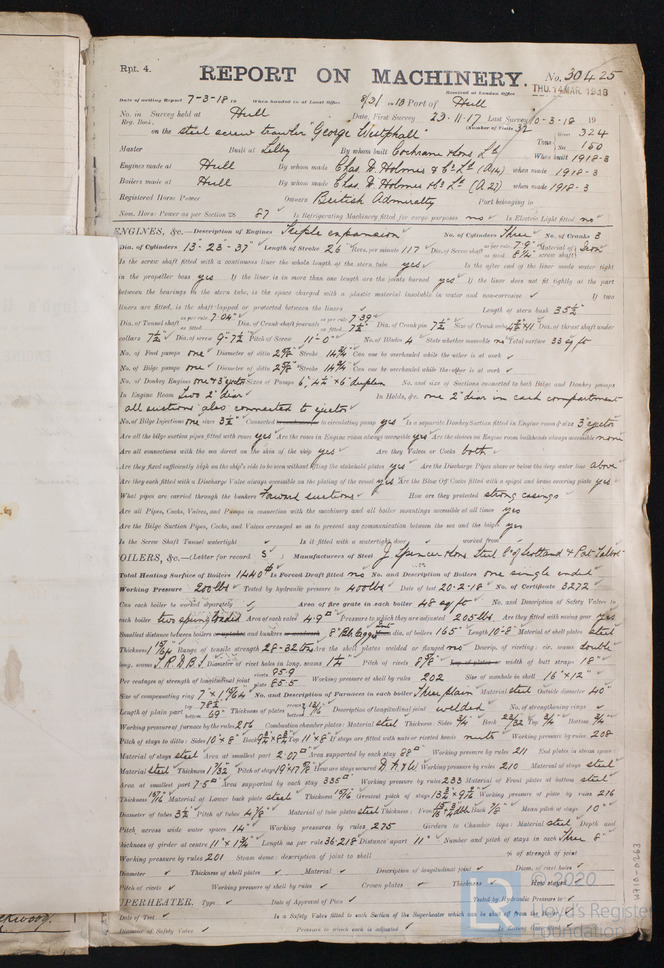 Rpt. 4.
REPORT ON MACHINERY.
No. 30425
Received at London Office THU. 14 MAR. 1918
Date of writing Report 7-3-18 19 When handed in at Local Office 8/3/ 1918 Port of Hull
No. in Survey held at Hull Date, First Survey 23.11.17 Last Survey 19
Reg. Book. (Number of Visits 32
on the steel screw trawler "George Westphall" Tons Gross 324
Net 150
Master Built at Selby By whom built Cochrane & Sons Ld When built 1918-3
Engines made at Hull By whom made Chas. D. Holmes & Co Ld when made 1918-3
Boilers made at Hull By whom made Chas. D. Holmes & Co Ld when made 1918-3
Registered Horse Power Owners British Admiralty Port belonging to
Nom. Horse Power as per Section 28 87 Is Refrigerating Machinery fitted for cargo purposes no Is Electric Light fitted no
ENGINES, &c.—Description of Engines Triple expansion No. of Cylinders Three No. of Cranks 3
Dia. of Cylinders 13"-23"-37" Length of Stroke 26" Revs. per minute 117 Dia. of Screw shaft as per rule 7.9" as fitted 8 1/4" Material of screw shaft Iron
Is the screw shaft fitted with a continuous liner the whole length of the stern tube yes Is the after end of the liner made water tight
in the propeller boss yes If the liner is in more than one length are the joints burned yes If the liner does not fit tightly at the part
between the bearings in the stern tube, is the space charged with a plastic material insoluble in water and non-corrosive If two
liners are fitted, is the shaft lapped or protected between the liners Length of stern bush 35 1/2"
Dia. of Tunnel shaft as per rule 7.04" as fitted Dia. of Crank shaft journals as per rule 7.39" as fitted 7 1/2" Dia. of Crank pin 7 1/2" Size of Crank webs Dia. of thrust shaft under
collars 7 1/2" Dia. of screw 9'-7 1/2" Pitch of Screw 11'-0" No. of Blades 4 State whether moveable no Total surface 33 sq ft
No. of Feed pumps one Diameter of ditto Stroke Can one be overhauled while the other is at work
No. of Bilge pumps one Diameter of ditto Stroke Can one be overhauled while the other is at work
No. of Donkey Engines one & 3" ejector Sizes of Pumps 6", 4 1/2" x 6" duplex No. and size of Suctions connected to both Bilge and Donkey pumps
In Engine Room Two 2" diar In Holds, &c. one 2" diar in each compartment
all suctions also connected to ejector
No. of Bilge Injections one sizes 3 1/2" Connected to circulating pump yes Is a separate Donkey Suction fitted in Engine room & size 3" ejector
Are all the bilge suction pipes fitted with roses yes Are the roses in Engine room always accessible yes Are the sluices on Engine room bulkheads always accessible none
Are all connections with the sea direct on the skin of the ship yes Are they Valves or Cocks both
Are they fixed sufficiently high on the ship's side to be seen without lifting the stokehold plates yes Are the Discharge Pipes above or below the deep water line above
Are they each fitted with a Discharge Valve always accessible on the plating of the vessel yes Are the Blow Off Cocks fitted with a spigot and brass covering plate yes
What pipes are carried through the bunkers Forward suctions How are they protected strong casings
Are all Pipes, Cocks, Valves, and Pumps in connection with the machinery and all boiler mountings accessible at all times yes
Are the Bilge Suction Pipes, Cocks, and Valves arranged so as to prevent any communication between the sea and the bilges yes
Is the Screw Shaft Tunnel watertight Is it fitted with a watertight door worked from
BOILERS, &c.—(Letter for record S) Manufacturers of Steel J. Spencer & Sons, Steel Co of Scotland & Port Talbot
Total Heating Surface of Boilers 1440 Is Forced Draft fitted no No. and Description of Boilers one single ended
Working Pressure 200 lbs Tested by hydraulic pressure to 400 lbs Date of test 20-2-18 No. of Certificate 3272
Can each boiler be worked separately Area of fire grate in each boiler 48 sq ft No. and Description of Safety Valves to
each boiler two spring loaded Area of each valve 4.9" Pressure to which they are adjusted 205 lbs Are they fitted with easing gear yes
Smallest distance between boilers and bunkers 8" dia. of boilers 165" Length 10'-8" Material of shell plates steel
Thickness Range of tensile strength 28-32 tons Are the shell plates welded or flanged no Descrip. of riveting: cir. seams double
long. seams T.R.D.B.S Diameter of rivet holes in long. seams 1 1/4" Pitch of rivets 8 7/8" width of butt straps 18"
Per centages of strength of longitudinal joint rivets 95.9 plate 85.5 Working pressure of shell by rules 202 Size of manhole in shell 16" x 12"
Size of compensating ring No. and Description of Furnaces in each boiler Three plain Material steel Outside diameter 40"
Length of plain part top 78 1/2" bottom 69" Thickness of plates Description of longitudinal joint welded No. of strengthening rings
Working pressure of furnace by the rules 206 Combustion chamber plates: Material steel Thickness: Sides 3/4" Back 22/32" Top 3/4" Bottom 3/4"
Pitch of stays to ditto: Sides 10" x 8" Back Top 11" x 8" If stays are fitted with nuts or riveted heads nuts Working pressure by rules 208
Material of stays steel Area at smallest part 2.07" Area supported by each stay 88" Working pressure by rules 211 End plates in steam space:
Material steel Thickness 1 7/32" Pitch of stays How are stays secured D.N. & W Working pressure by rules 210 Material of stays steel
Area at smallest part 7.5" Area supported by each stay 335" Working pressure by rules 233 Material of Front plates at bottom steel
Thickness 15/16" Material of Lower back plate steel Thickness 15/16" Greatest pitch of stays 13 3/4" x 9 1/2" Working pressure of plate by rules 216
Diameter of tubes 3 1/2" Pitch of tubes 4 7/8" Material of tube plates steel Thickness: Front Back 7/8" Mean pitch of stays 10"
Pitch across wide water spaces 14" Working pressures by rules 275 Girders to Chamber tops: Material steel Depth and
thickness of girder at centre 11" x 1 3/4" Length as per rule 36.218 Distance apart 11" Number and pitch of stays in each Three 8"
Working pressure by rules 201 Steam dome: description of joint to shell % of strength of joint
Diameter Thickness of shell plates Material Description of longitudinal joint Diam. of rivet holes
Pitch of rivets Working pressure of shell by rules Crown plates Thickness How stayed
SUPERHEATER. Type Date of Approval of Plan Tested by Hydraulic Pressure to
Date of Test Is a Safety Valve fitted to each Section of the Superheater which can be shut off from the Boiler
Diameter of Safety Valve Pressure to which each is adjusted Is Easing Gear fitted
W710-0263
© 2020
Lloyd's Register
Foundation
LR